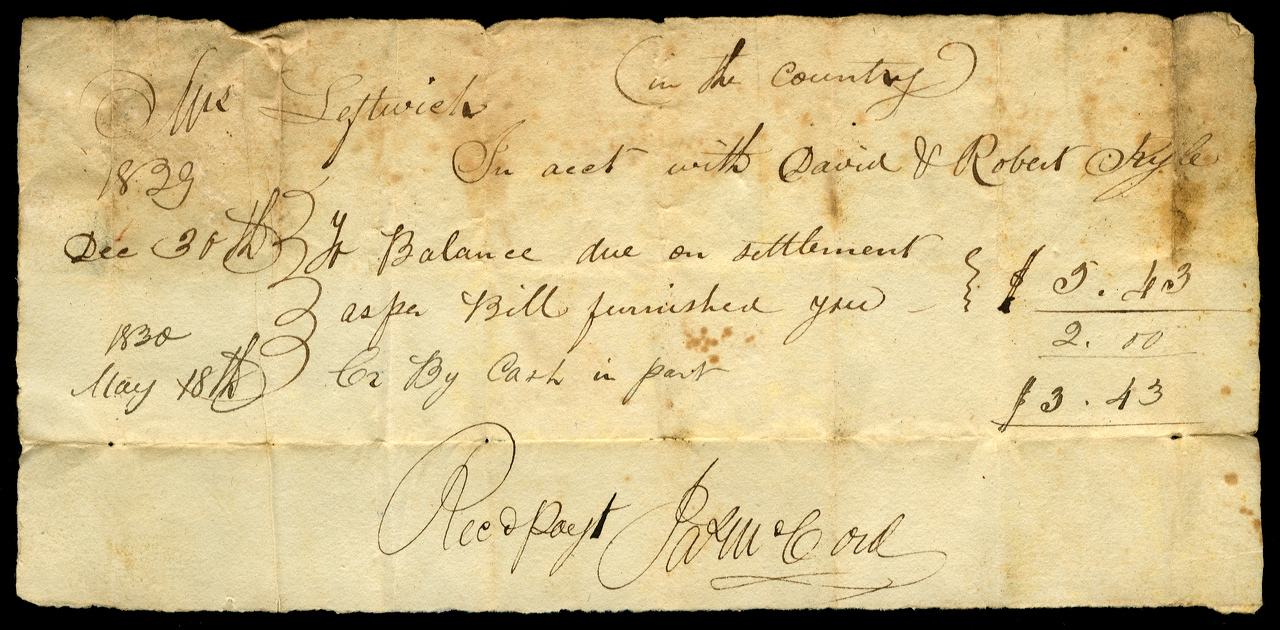 Mrs Leftwich (in the country)
In acct with David & Robert Kyle
1829
Dec 30th To Balance due on settlement
as per Bill furnished you $5.43
1830 2.00
May 18th Cr By Cash in part
$3.43
Recd payt Jas McCord